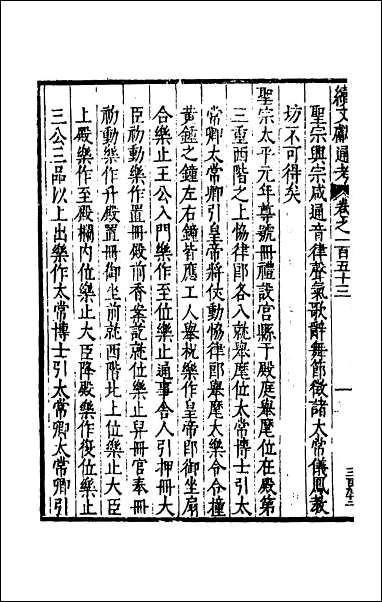 續文獻通考 卷之一百五十三
一
聖宗興宗咸通音律聲氣歌辭舞節徵諸大常儀鳳教
坊不可得矣
聖宗太平元年尊號冊禮設宮縣于殿庭舉麾位在殿第
三重西階之上恊律郎各入就舉麾位太常博士引太
常卿太常卿引皇帝將伏動恊律郎舉麾大樂令令撞
黃鍾之鐘左右鐘皆應工人舉柷樂作皇帝即御坐扇
合樂止王公入門樂作至位樂止通事舍人引押冊大
臣初動樂作置冊殿前香案訖就位樂止舁冊官奉冊
初動樂作升殿置冊御坐前就西階北上位樂止大臣
上殿樂作至殿欄內位樂止大臣降殿樂作復位樂止
三公三品以上出樂作太常博士引太常卿太常卿引